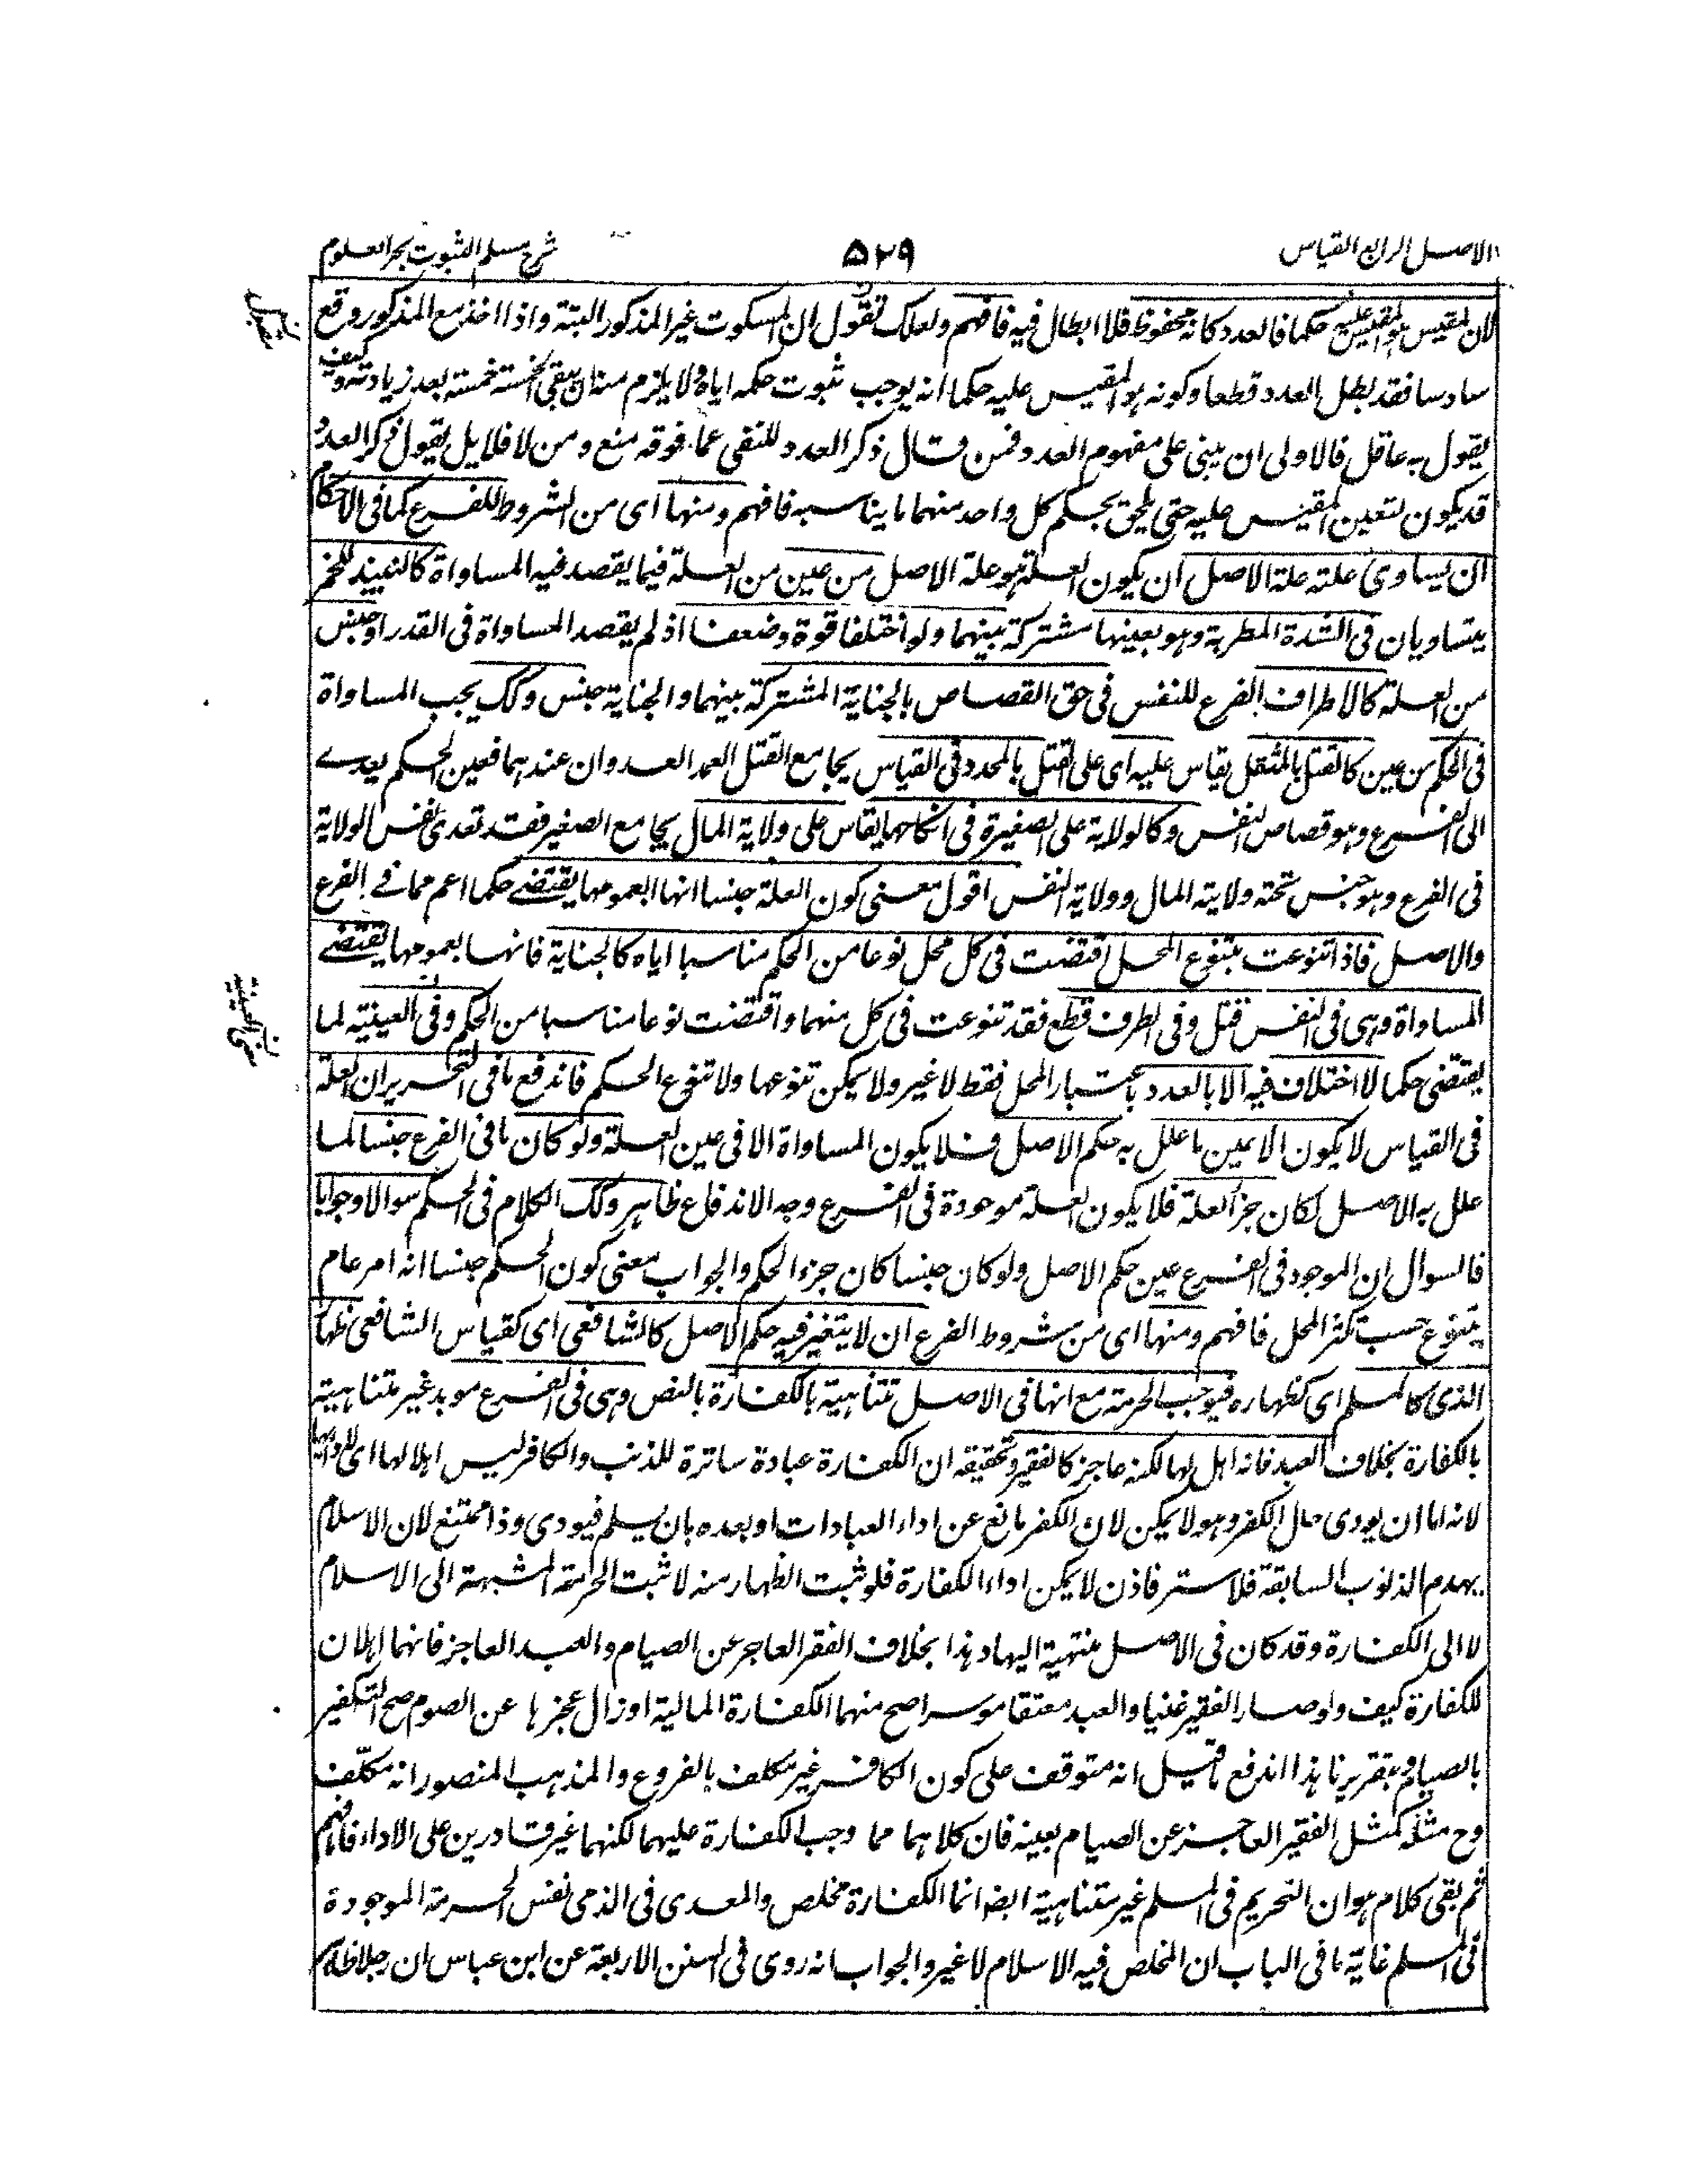 الاصل الرابع القياس ۵۲۹ شرح مسلم الثبوت بحر العلوم
لان المقيس هو المقيس عليه حكما فالعدد كانه محفوظ فلا ابطال فيه فافهم ولعلك تقول ان المسكوت غير المذكور البتة واذا اخذ مع المذكور وقع
سادسا فقد بطل العدد قطعا وكونه هو المقيس عليه حكما انه يوجب ثبوت حكمه اياه ولا يلزم منه ان يبقى الخمسة خمسة بعد زيادته وكيف
يقول به عاقل فالاولى ان يبنى على مفهوم العدد فمن قال ذكر العدد للنفى عما فوقه منع ومن لا فلا بل يقول ذكر العدد
قد يكون لتعين المقيس عليه حتى يلحق بحكم كل واحد منهما ما يناسبه فافهم ومنها اى من الشروط للفرع كما فى الاحكام
ان يساوى علته علة الاصل ان يكون العلة هو علة الاصل من عين من العلة فيما يقصد فيه المساواة كالنبيذ للخمر
يتساويان فى الشدة المطربة وهو بعينها مشتركة بينهما ولو اختلفا قوة وضعفا اذ لم يقصد المساواة فى القدر او جنس
من العلة كالاطراف الفرع للنفس فى حق القصاص بالجناية المشتركة بينهما والجناية جنس وكك يجب المساواة
فى الحكم من عين كالقتل بالمثقل يقاس عليه اى على القتل بالمحدد فى القياس بجامع القتل العمد العدوان عندهما فعين الحكم يعدے
الى الفرع وهو قصاص النفس وكالولاية على الصغيرة فى انكاحها يقاس على ولاية المال بجامع الصغير فقد تعدى نفس الولاية
فى الفرع وهو جنس تحته ولاية المال وولاية النفس اقول معنى كون العلة جنسا انها بعمومها يقتضے حكما اعم مما فے الفرع
والاصل فاذا تنوعت بتنوع المحل اقتضت فى كل محل نوعا من الحكم مناسبا اياه كالجناية فانها بعمومها يقتضے
المساواة وهى فى النفس قتل وفى الطرف قطع فقد تنوعت فى كل منهما واقتضت نوعا مناسبا من الحكم وفى العينية لما
يقتضى حكما لا اختلاف فيه الا بالعدد باعتبار المحل فقط لا غير ولا يمكن تنوعها ولا تنوع الحكم فاندفع ما فى التحرير ان العلة
فى القياس لا يكون الا بعين ما علل به حكم الاصل فلا يكون المساواة الا فى عين العلة ولو كان ما فى الفرع جنسا لما
علل به الاصل لكان جزأ لعلة فلا يكون العلة موجودة فى الفرع وجه الاندفاع ظاهر وكك الكلام فى الحكم سوالا وجوابا
فالسوال ان الموجود فى الفرع عين حكم الاصل ولو كان جنسا كان جزء الحكم والجواب معنى كون الحكم جنسا انه امر عام
يتنوع حسب تكثر المحل فافهم ومنها اى من شروط الفرع ان لا يتغير فيه حكم الاصل كالشافعى اى كقياس الشافعى ظهار
الذى كالمسلم اى كظهاره فيوجب الحرمة مع انها فى الاصل متناهية بالكفارة بالنص وهى فى الفرع مويد غير متناهية
بالكفارة بخلاف العبد فانه اهل لها لكنه عاجز كالفقير وتحقيقه ان الكفارة عبادة ساترة للذنب والكافر ليس اهلا لها اى لادائها
لانه اما ان يودى حال الكفر وهو لا يمكن لان الكفر مانع عن اداء العبادات او بعده بان يسلم فيودى وذا ممتنع لان الاسلام
يهدم الذنوب السابقة فلا ستر فاذن لا يمكن اداء الكفارة فلو ثبت الظهار منه لا ثبت الحرمة المشبهة الى الاسلام
لا الى الكفارة وقد كان فى الاصل منتهية اليها وهذا بخلاف الفقر العاجز عن الصيام والعبد العاجز فانهما اهلان
للكفارة كيف ولو صار الفقير غنيا والعبد معتقا موسرا صح منهما الكفارة المالية او زال عجزها عن الصوم صح التكفير
بالصيام وبتقريرنا هذا اندفع ما قيل انه متوقف على كون الكافر غير مكلف بالفروع والمذهب المنصور انه مكلّف
وح مثله كمثل الفقير العاجز عن الصيام بعينه فان كلاهما مما وجب الكفارة عليهما لكنهما غير قادرين على الاداء فافهم
ثم بقى كلام هو ان التحريم فى المسلم غير متناهية ايضا انما الكفارة مخلص والمعدى فى الذمى نفس الحرمة الموجودة
فى المسلم غاية ما فى الباب ان المخلص فيه الاسلام لا غير والجواب انه روى فى السنن الاربعة عن ابن عباس ان رجلا ظاهر